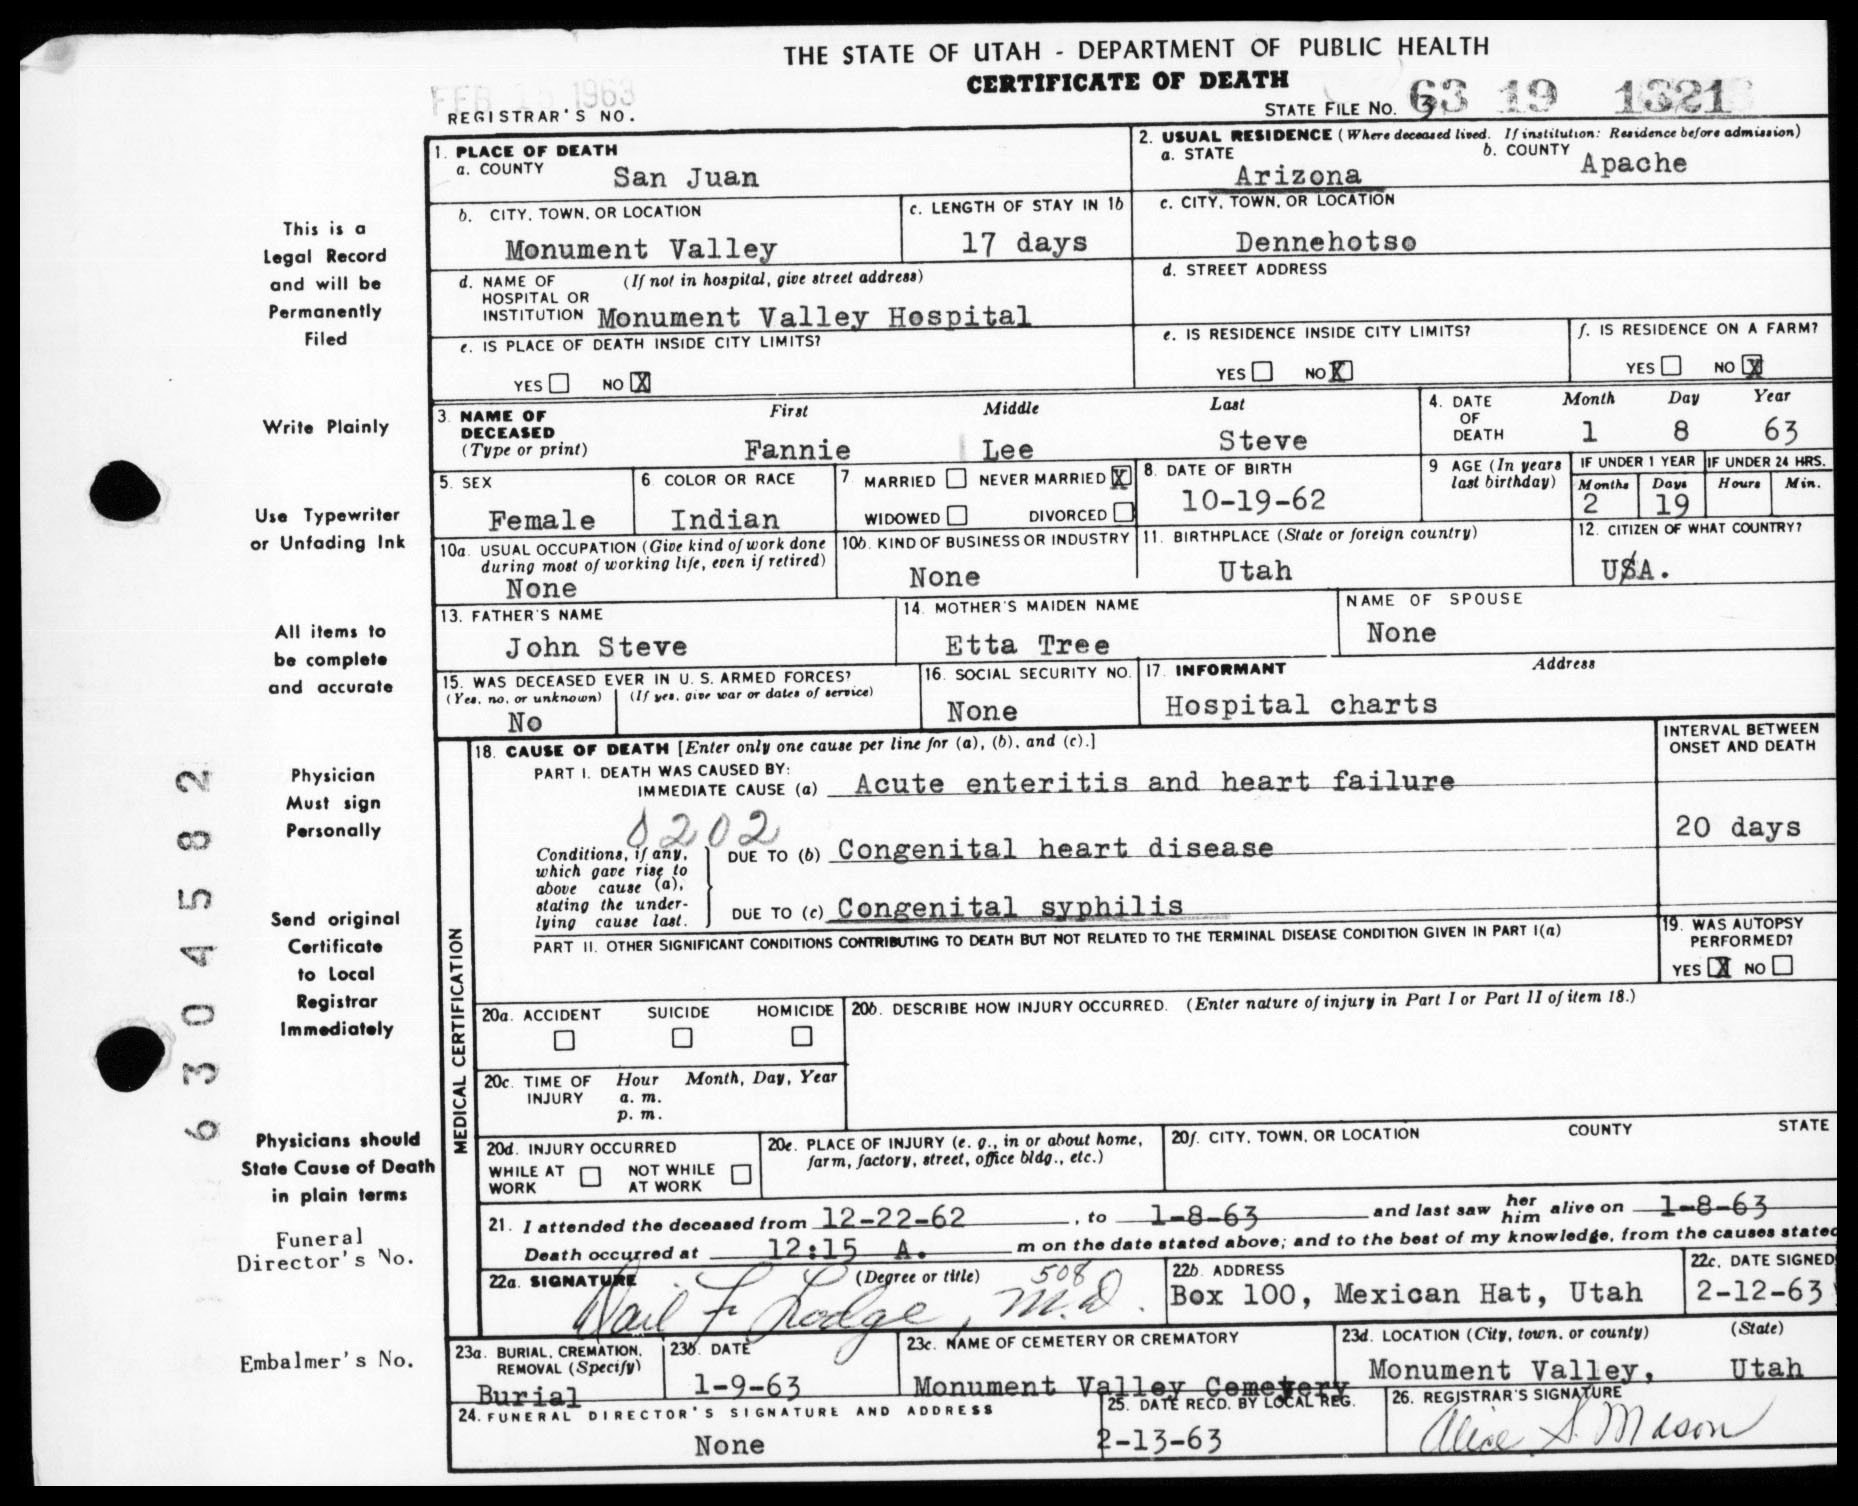 THE STATE OF UTAH - DEPARTMENT OF PUBLIC HEALTH
CERTIFICATE OF DEATH
FEB 1963
REGISTRAR'S NO.
STATE FILE NO. 63 19 1321
1. PLACE OF DEATH
a. COUNTY San Juan
2. USUAL RESIDENCE (Where deceased lived. If institution: Residence before admission)
a. STATE Arizona
b. COUNTY Apache
b. CITY, TOWN, OR LOCATION
Monument Valley
c. LENGTH OF STAY IN 1b
17 days
c. CITY, TOWN, OR LOCATION
Dennehotso
d. NAME OF HOSPITAL OR INSTITUTION (If not in hospital, give street address)
Monument Valley Hospital
d. STREET ADDRESS
e. IS PLACE OF DEATH INSIDE CITY LIMITS?
YES NO X
e. IS RESIDENCE INSIDE CITY LIMITS?
YES NO X
f. IS RESIDENCE ON A FARM?
YES NO X
3. NAME OF DECEASED (Type or print)
First Middle Last
Fannie Lee Steve
4. DATE OF DEATH
Month Day Year
1 8 63
5. SEX
Female
6. COLOR OR RACE
Indian
7. MARRIED NEVER MARRIED X
WIDOWED DIVORCED
8. DATE OF BIRTH
10-19-62
9 AGE (In years last birthday)
IF UNDER 1 YEAR
Months Days
2 19
IF UNDER 24 HRS.
Hours Min.
10a. USUAL OCCUPATION (Give kind of work done during most of working life, even if retired)
None
10b. KIND OF BUSINESS OR INDUSTRY
None
11. BIRTHPLACE (State or foreign country)
Utah
12. CITIZEN OF WHAT COUNTRY?
USA.
13. FATHER'S NAME
John Steve
14. MOTHER'S MAIDEN NAME
Etta Tree
NAME OF SPOUSE
None
15. WAS DECEASED EVER IN U. S. ARMED FORCES?
(Yes, no, or unknown) (If yes, give war or dates of service)
No
16. SOCIAL SECURITY NO.
None
17. INFORMANT Address
Hospital charts
MEDICAL CERTIFICATION
18. CAUSE OF DEATH [Enter only one cause per line for (a), (b), and (c).]
INTERVAL BETWEEN ONSET AND DEATH
PART I. DEATH WAS CAUSED BY:
IMMEDIATE CAUSE (a) Acute enteritis and heart failure
0202
20 days
Conditions, if any, which gave rise to above cause (a), stating the underlying cause last.
DUE TO (b) Congenital heart disease
DUE TO (c) Congenital syphilis
PART II. OTHER SIGNIFICANT CONDITIONS CONTRIBUTING TO DEATH BUT NOT RELATED TO THE TERMINAL DISEASE CONDITION GIVEN IN PART I(a)
19. WAS AUTOPSY PERFORMED?
YES X NO
20a. ACCIDENT SUICIDE HOMICIDE
20b. DESCRIBE HOW INJURY OCCURRED. (Enter nature of injury in Part I or Part II of item 18.)
20c. TIME OF INJURY Hour Month, Day, Year
a. m.
p. m.
20d. INJURY OCCURRED
WHILE AT WORK NOT WHILE AT WORK
20e. PLACE OF INJURY (e. g., in or about home, farm, factory, street, office bldg., etc.)
20f. CITY, TOWN, OR LOCATION COUNTY STATE
21. I attended the deceased from 12-22-62, to 1-8-63 and last saw her him alive on 1-8-63
Death occurred at 12:15 A. m on the date stated above; and to the best of my knowledge, from the causes stated
22a. SIGNATURE (Degree or title)
508
F. Lodge, M.D.
22b. ADDRESS
Box 100, Mexican Hat, Utah
22c. DATE SIGNED
2-12-63
23a. BURIAL, CREMATION, REMOVAL (Specify)
Burial
23b. DATE
1-9-63
23c. NAME OF CEMETERY OR CREMATORY
Monument Valley Cemetery
23d. LOCATION (City, town, or county) (State)
Monument Valley, Utah
24. FUNERAL DIRECTOR'S SIGNATURE AND ADDRESS
None
25. DATE RECD. BY LOCAL REG.
2-13-63
26. REGISTRAR'S SIGNATURE
Alice S. Mason
This is a
Legal Record
and will be
Permanently
Filed
Write Plainly
Use Typewriter
or Unfading Ink
All items to
be complete
and accurate
Physician
Must sign
Personally
Send original
Certificate
to Local
Registrar
Immediately
Physicians should
State Cause of Death
in plain terms
Funeral
Director's No.
Embalmer's No.
6304582